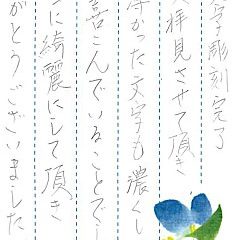 彫刻完了
拝見させて頂き
かった文字も濃くし
喜こんでいることでし
に綺麗にして頂き
がとうございました